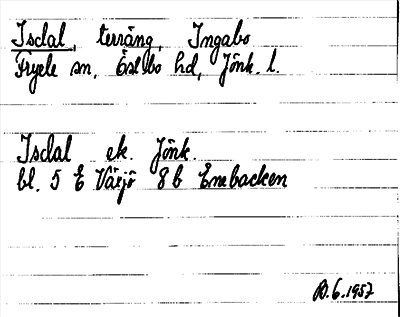 Isdal, terräng, Ingabo
Fryele sn, Östbo hd, Jönk. l.
Isdal ek. Jönk.
bl. 5 E Växjö 8b Enebacken
R. 6. 1957